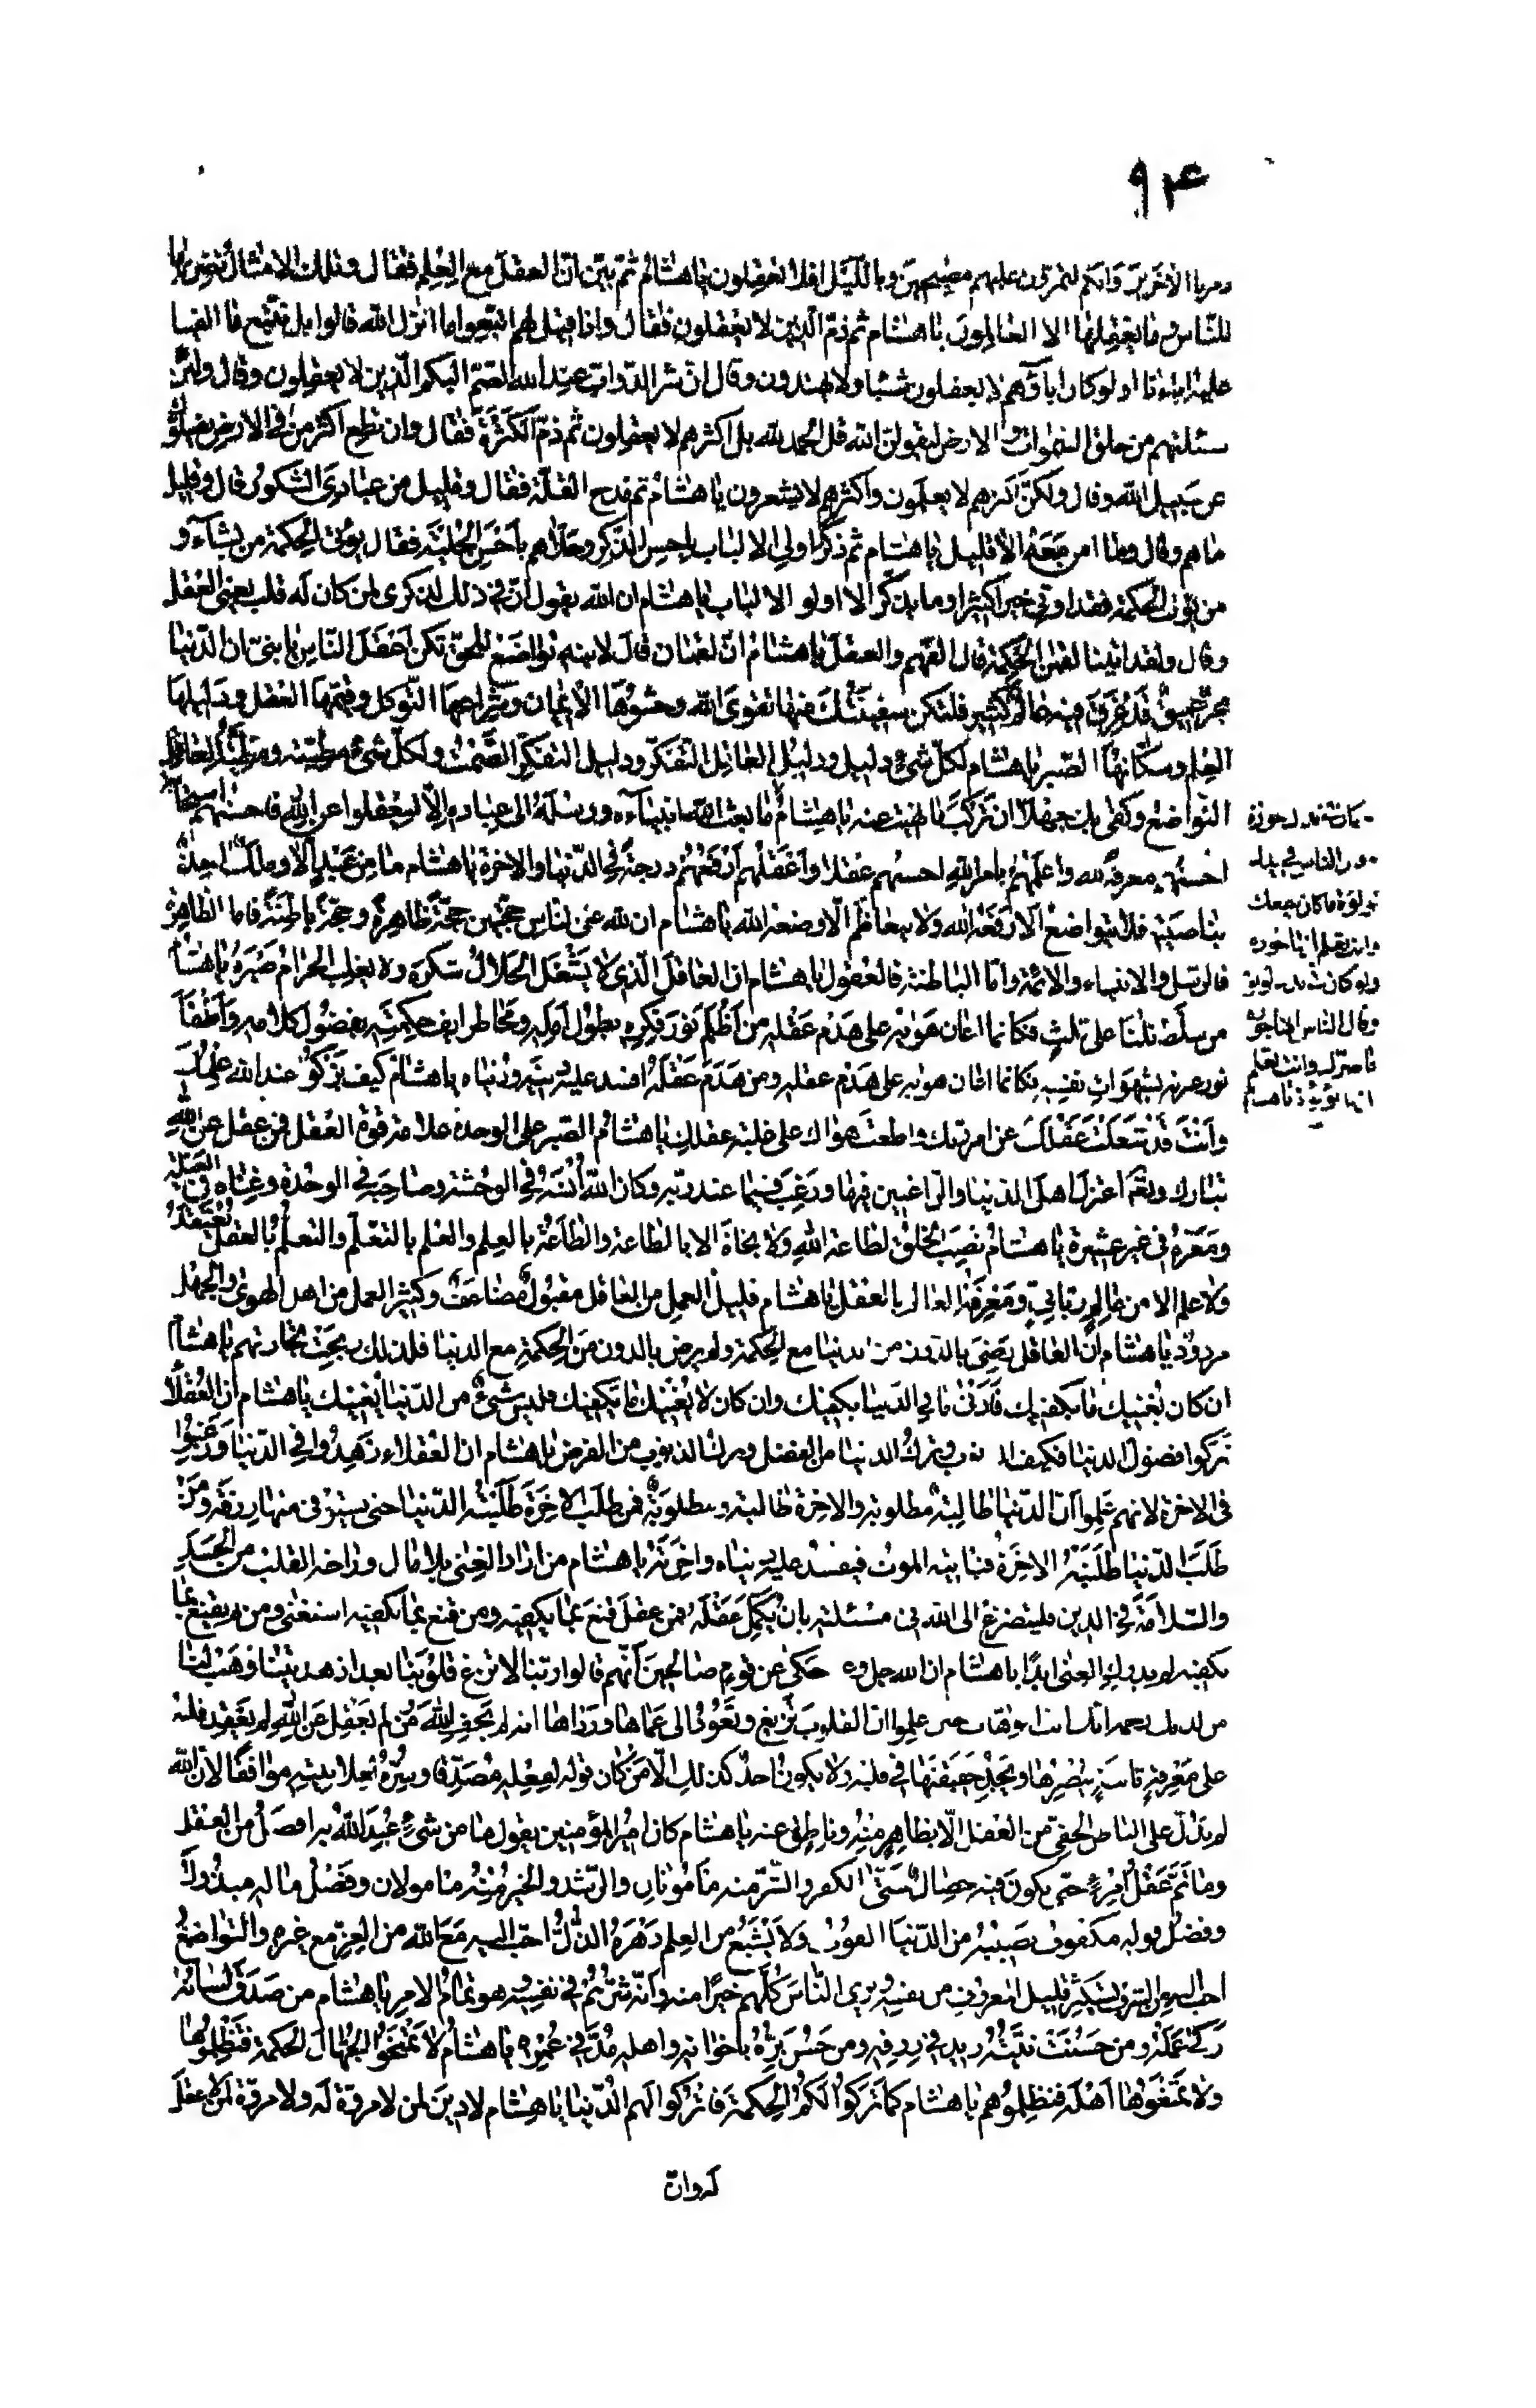 ٩٤
دمرنا الآخرين وانكم لتمرون عليهم مصبحين وبالليل افلا تعقلون يا هشام ثم بين ان العقل مع العلم فقال وتلك الامثال نضربها
للناس وما يعقلها الا العالمون يا هشام ثم ذم الذين لا يعقلون فقال واذا قيل لهم اتبعوا ما انزل الله قالوا بل نتبع ما الفينا
عليه اباءنا اولو كان اباؤهم لا يعقلون شيئا ولا يهتدون وقال ان شر الدواب عند الله الصم البكم الذين لا يعقلون وقال ولئن
سئلتهم من خلق السموات والارض ليقولن الله قل الحمد لله بل اكثرهم لا يعقلون ثم ذم الكثرة فقال وان تطع اكثر من في الارض يضلوك
عن سبيل الله وقال ولكن اكثرهم لا يعلمون واكثرهم لا يشعرون يا هشام ثم مدح القلة فقال وقليل من عبادي الشكور وقال وقليل
ما هم وقال وما امن معه الا قليل يا هشام ثم ذكر اولي الالباب باحسن الذكر وحلاهم باحسن الحلية فقال يؤتي الحكمة من يشآء و
من يؤت الحكمة فقد اوتي خيرا كثيرا وما يذكر الا اولو الالباب يا هشام ان الله يقول ان في ذلك لذكرى لمن كان له قلب يعني العقل
وقال ولقد اتينا لقمن الحكمة قال الفهم والعقل يا هشام ان لقمان قال لابنه تواضع للحق تكن اعقل الناس يا بني ان الدنيا
بحر عميق قد غرق فيه عالم كثير فلتكن سفينتك فيها تقوى الله وحشوها الايمان وشراعها التوكل وقيمها العقل ودليلها
العلم وسكانها الصبر يا هشام لكل شيء دليل ودليل العاقل التفكر ودليل التفكر الصمت ولكل شيء مطية ومطية العاقل
التواضع وكفى بك جهلا ان تركب ما نهيت عنه يا هشام ما بعث الله انبيآءه ورسله الى عباده الا ليعقلوا عن الله فاحسنهم استجابة
احسنهم معرفة لله واعلمهم بامر الله احسنهم عقلا واعقلهم ارفعهم درجة في الدنيا والاخرة يا هشام ما من عبد الا وملك اخذ
بناصيته فلا يتواضع الا رفعه الله ولا يتعاظم الا وضعه الله يا هشام ان لله على الناس حجتين حجة ظاهرة وحجة باطنة فاما الظاهرة
فالرسل والانبياء والائمة واما الباطنة فالعقول يا هشام ان العاقل الذي لا يشغل الحلال شكره ولا يغلب الحرام صبره يا هشام
من سلط ثلثا على ثلث فكانما اعان هواه على هدم عقله من اظلم نور فكره بطول امله ومحا طرايف حكمته بفضول كلامه واطفأ
نور عبرته بشهوات نفسه فكانما اعان هواه على هدم عقله ومن هدم عقله افسد عليه دينه ودنياه يا هشام كيف يزكو عند الله عملك
وانت قد شغلت عقلك عن امر ربك واطعت هواك على غلبة عقلك يا هشام الصبر على الوحدة علامة قوة العقل فمن عقل عن الله
تبارك وتعالى اعتزل اهل الدنيا والراغبين فيها ورغب فيما عند ربه وكان الله انسه في الوحشة وصاحبه في الوحدة وغناه في العيلة
ومعزه في غير عشيرة يا هشام نصب الخلق لطاعة الله ولا نجاة الا بالطاعة والطاعة بالعلم والعلم بالتعلم والتعلم بالعقل يعتقد
ولا علم الا من عالم رباني ومعرفة العالم بالعقل يا هشام قليل العمل من العاقل مقبول مضاعف وكثير العمل من اهل الهوى والجهل
مردود يا هشام ان العاقل رضي بالدون من الدنيا مع الحكمة ولم يرض بالدون من الحكمة مع الدنيا فلذلك ربحت تجارتهم يا هشام
ان كان يغنيك ما يكفيك فادنى ما في الدنيا يكفيك وان كان لا يغنيك ما يكفيك فليس شيء من الدنيا يغنيك يا هشام ان العقلاء
تركوا فضول الدنيا فكيف الذنوب وترك الدنيا من الفضل وترك الذنوب من الفرض يا هشام ان العقلاء زهدوا في الدنيا ورغبوا
في الاخرة لانهم علموا ان الدنيا طالبة مطلوبة والاخرة طالبة ومطلوبة فمن طلب الاخرة طلبته الدنيا حتى يستوفي منها رزقه ومن
طلب الدنيا طلبته الاخرة فيأتيه الموت فيفسد عليه دنياه واخرته يا هشام من اراد الغنى بلا مال وراحة القلب من الحسد
والسلامة في الدين فليتضرع الى الله في مسئلته بان يكمل عقله فمن عقل قنع بما يكفيه ومن قنع بما يكفيه استغنى ومن لم يقنع بما
يكفيه لم يدرك الغنى ابدا يا هشام ان الله جل وعز حكى عن قوم صالحين انهم قالوا ربنا لا تزغ قلوبنا بعد اذ هديتنا وهب لنا
من لدنك رحمة انك انت الوهاب حين علموا ان القلوب تزيغ وتعود الى عماها ورداها انه لم يخف الله من لم يعقل عن الله لم يعقد قلبه
على معرفة ثابتة يبصرها ويجد حقيقتها في قلبه ولا يكون احد كذلك الا من كان قوله لفعله مصدقا وسره لعلانيته موافقا لان الله
لم يدل على الباطن الخفي من العقل الا بظاهر منه وناطق عنه يا هشام كان امير المؤمنين يقول ما من شيء عبد الله به افضل من العقل
وما تم عقل امرء حتى يكون فيه خصال شتى الكفر والشر منه مأمونان والرشد والخير منه مامولان وفضل ماله مبذول
وفضل قوله مكفوف نصيبه من الدنيا القوت ولا يشبع من العلم دهره الذل احب اليه مع الله من العز مع غيره والتواضع
احب اليه من الشرف يستكثر قليل المعروف من نفسه ويرى الناس كلهم خيرا منه وانه شرهم في نفسه وهو تمام الامر يا هشام من صدق لسانه
زكى عمله ومن حسنت نيته زيد في رزقه ومن حسن بره باخوانه واهله مد في عمره يا هشام لا تمنحوا الجهال الحكمة فتظلموها
ولا تمنعوها اهلها فتظلموهم يا هشام كما تركوا لكم الحكمة فاتركوا لهم الدنيا يا هشام لا دين لمن لا مروة له ولا مروة لمن لا عقل
له وان
الناس في يدك
لؤلؤة ما كان ينفعك
وانت تعلم انها جوزة
ولو كان في يدك لؤلؤة
وقال الناس انها جوزة
ما ضرك وانت تعلم
انها لؤلؤة يا هشام